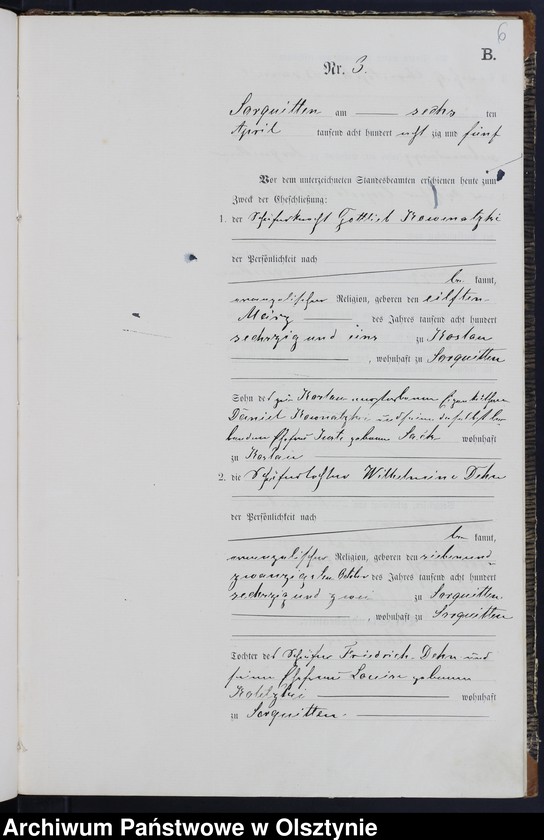 6
B.
Nr. 3.
Sorquitten am sechs ten
April tausend acht hundert acht zig und fünf
Vor dem unterzeichneten Standesbeamten erschienen heute zum
Zweck der Eheschließung:
1. der Schäferknecht Gottlieb Kownatzki
der Persönlichkeit nach
be kannt,
evangelischer Religion, geboren den eilften
März des Jahres tausend acht hundert
sechszig und eins zu Koslau
, wohnhaft zu Sorquitten
Sohn des zu Koslau verstorbenen Eigenkäthner
Daniel Kownatzki und seiner daselbst le-
benden Ehefrau geborene Sack wohnhaft
zu Koslau
2. die Schäfertochter Wilhelmine Dehn
der Persönlichkeit nach
be kannt,
evangelischer Religion, geboren den sieben und
zwanzigsten October des Jahres tausend acht hundert
sechszig und zwei zu Sorquitten
, wohnhaft zu Sorquitten
Tochter des Schäfer Friedrich Dehn und
seiner Ehefrau Louise geborenen
wohnhaft
zu Sorquitten
Archiwum Państwowe w Olsztynie